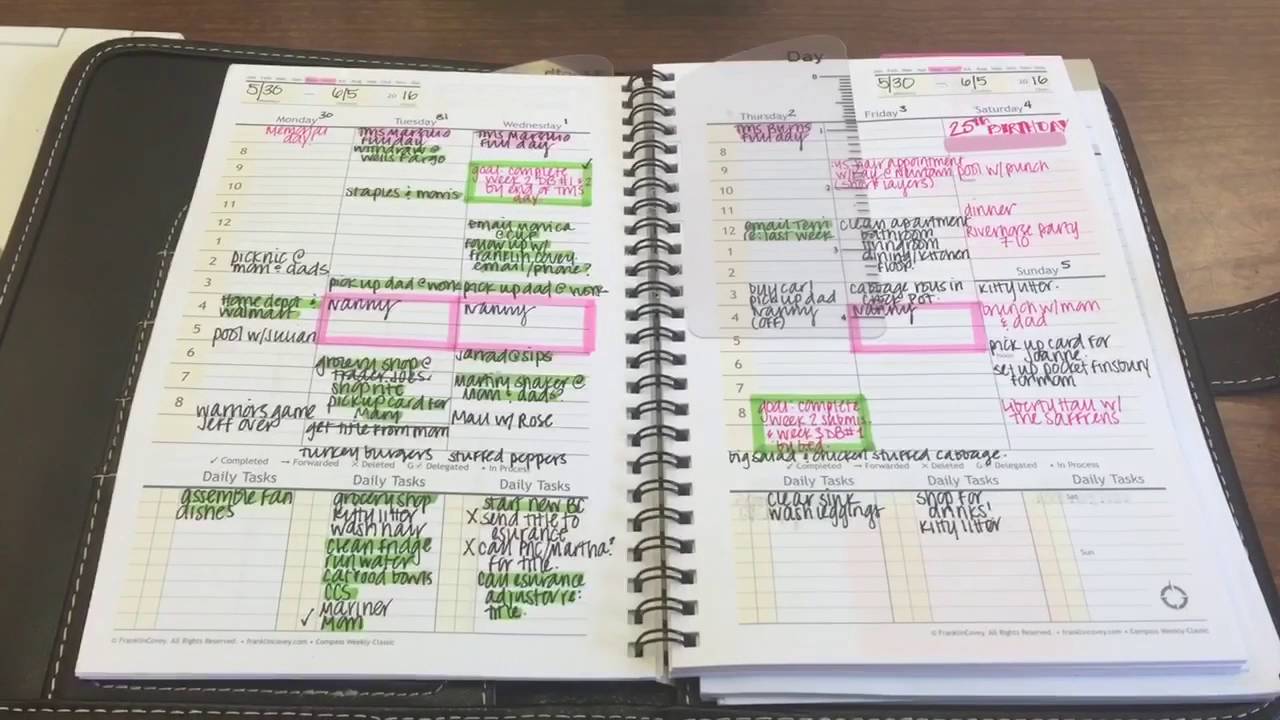 Day
5/30 — 6/5 20 16
Monday 30
Memorial
day!
picnic @
mom & dads
Home depot &
walmart
pool w/Julian
warriors game
Jeff over
Tuesday 31
full day
withdraw @
wells Fargo
staples & moms
pick up dad @ work
Nanny
grocery shop @
Trader Joes.
shoprite
pick up card for
Mary
get title from mom
turkey burgers
Wednesday 1
full day
goal: complete
week 2 DB#1 & 2
by end of this
day
email monica
@ CCP
follow up w/
franklin covey
email/phone?
pick up dad @ work
Nanny
Jarrad @ sips
martini shaker @
mom & dads
Mall w/ Rose
stuffed peppers
8
9
10
11
12
1
2
3
4
5
6
7
8
✓ Completed → Forwarded X Deleted G✓ Delegated • In Process
Daily Tasks
assemble fan
dishes
Daily Tasks
grocery shop
kitty litter
wash hair
clean fridge
run water
cat food bowls
CCS
mariner
✓ Mom
Daily Tasks
start new BC
X send title to
esurance
X call PNC/Martha?
for title.
call esurance
adjustor re:
title.
© FranklinCovey. All Rights Reserved. • franklincovey.com • Compass Weekly Classic
5/30 — 6/5 20 16
Thursday 2
Ms Burns
full day
email Terri
re: last week
buy car!
pick up dad
Nanny
(OFF)
goal: complete
week 2 submis.
& week 3 DB#1
by bed.
big salad & chicken stuffed cabbage.
Friday 3
hair appointment
(short layers)
clean apartment
bathroom
dining/kitchen
floor.
cabbage rolls in
crock pot.
Nanny
Saturday 4
25th BIRTHDAY
pool w/ punch
dinner
Riverhorse party
710
Sunday 5
kitty litter.
brunch w/ mom
& dad
pick up card for
Joanne.
set up pocket finsbury
for mom
liberty Hall w/
the Saffrens
8
9
10
11
12
1
2
3
4
5
6
7
8
✓ Completed → Forwarded X Deleted G✓ Delegated • In Process
Daily Tasks
clear sink
wash leggings
Daily Tasks
shop for
drinks!
kitty litter
Daily Tasks
Sat
Sun
© FranklinCovey. All Rights Reserved. • franklincovey.com • Compass Weekly Classic